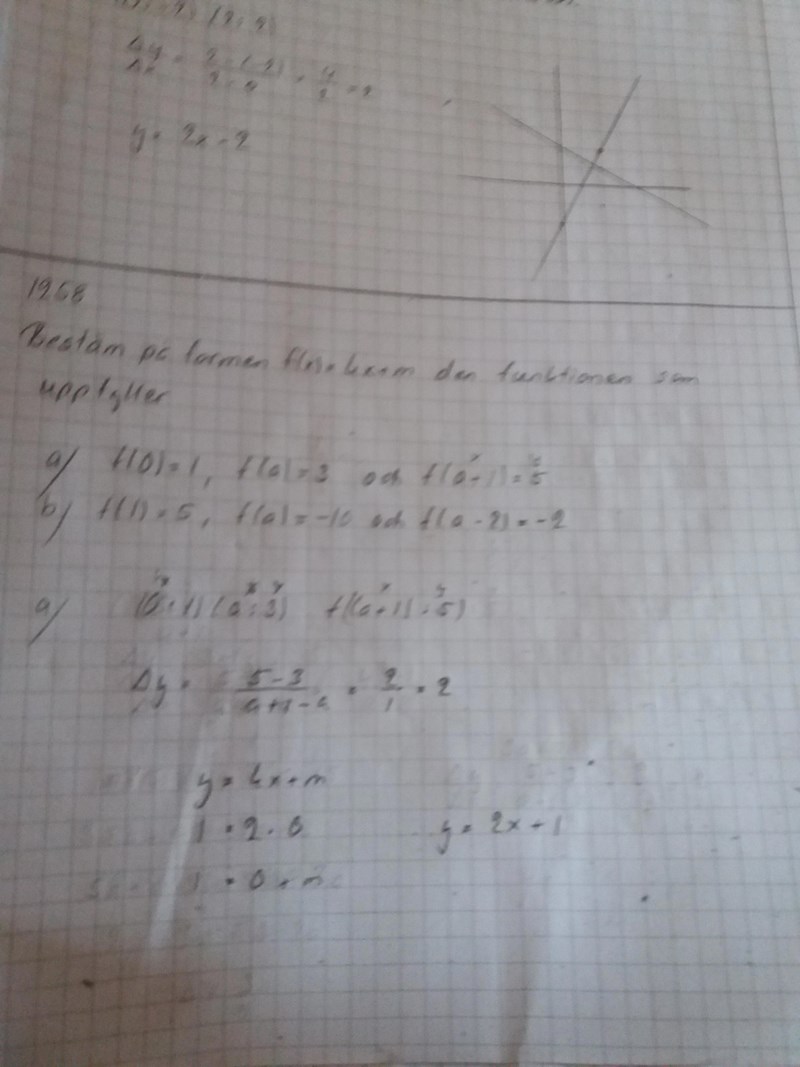 (2; 2)
Δy/Δx = 2-(-2)/2-0 = 4/2 = 2
y = 2x - 2
1268
Bestäm på formen f(x) = kx+m den funktionen som
uppfyller
a) f(0) = 1, f(a) = 3 och f(a+1) = 5
b) f(1) = 5, f(a) = -10 och f(a-2) = -2
a) (0;1) (a;3) f((a+1);5)
Δy = 5-3/a+1-a = 2/1 = 2
y = kx+m
1 = 2·0 y = 2x+1
1 = 0+m